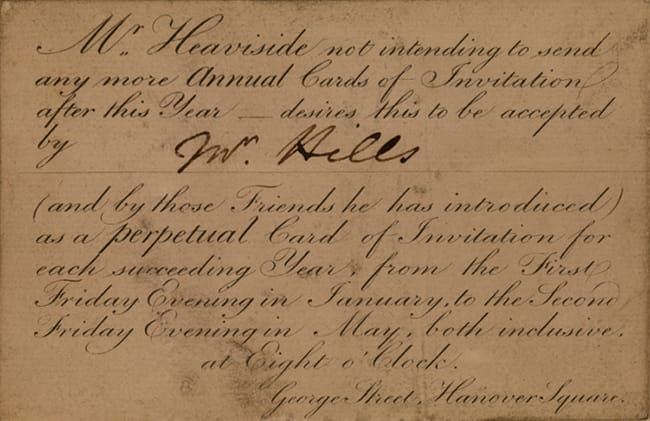 Mr. Heaviside not intending to send
any more Annual Cards of Invitation
after this Year — desires this to be accepted
by Mr. Hills
(and by those Friends he has introduced)
as a perpetual Card of Invitation for
each succeeding Year, from the First
Friday Evening in January, to the Second
Friday Evening in May, both inclusive,
at Eight o'Clock.
George Street, Hanover Square.